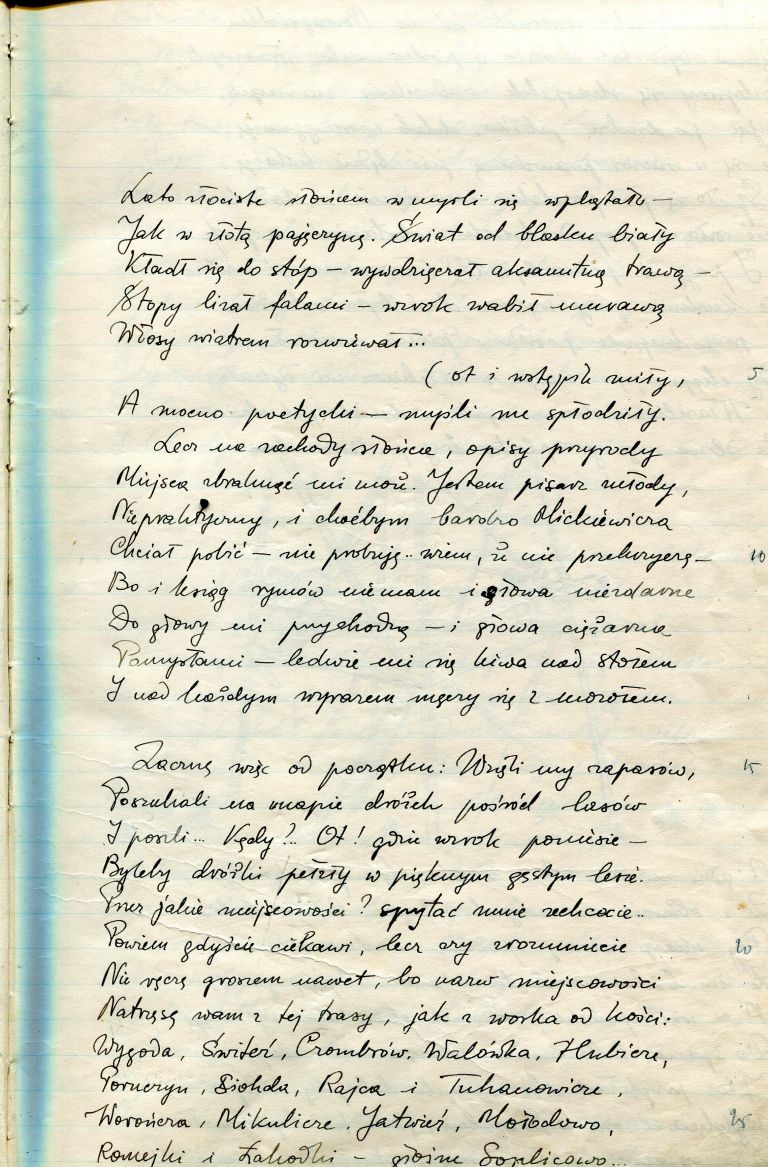 Lato złociste słońcem w myśli się wplątało –
Jak w złotą pajęczynę. Świat od blasku biały
Kładł się do stóp – wywdzięczał aksamitną trawą –
Stopy lizał falami – wzrok wabił murawą
Włosy wiatrem rozwiewał...
( ot i wstępik miły, 5
A mocno poetycki – myśli me spłodziły.
Lecz na zachody słońca, opisy przyrody
Miejsca zbraknąć mi może. Jestem pisarz młody,
Niepraktyczny, i choćbym bardzo Mickiewicza
Chciał pobić – nie próbuję.. wiem, że nie 10
Bo i ksiąg rymów nie mam i głowa
Do głowy mi przychodzą – i głowa ciężarna
Pomysłami – ledwie mi się kiwa nad stołem
I nad każdym wyrazem męczy się z mozołem.
Zacznę więc od początku: Wzięli my zapasów, 15
Poszukali na mapie dróżek pośród lasów
I poszli... Kędy?.. Ot! gdzie wzrok poniesie –
Byleby dróżki pełzły w pięknym gęstym lesie.
Przez jakie miejscowości? spytać mnie zechcecie..
Powiem gdyście ciekawi, lecz czy zrozumiecie 20
Nie ręczę groszem nawet, bo nazw miejscowości
Natrzęsę wam z tej trasy, jak z worka od kości:
Wygoda, Świteź, Czombrów, Walówka, Hubicze,
Poruczyn, Siohda, Rajca i Tuhanowicze,
Worończa, Mikulicze, Jatwieź, Mołodowo, 25
Romejki i Zahodki – głośne Soplicowo...